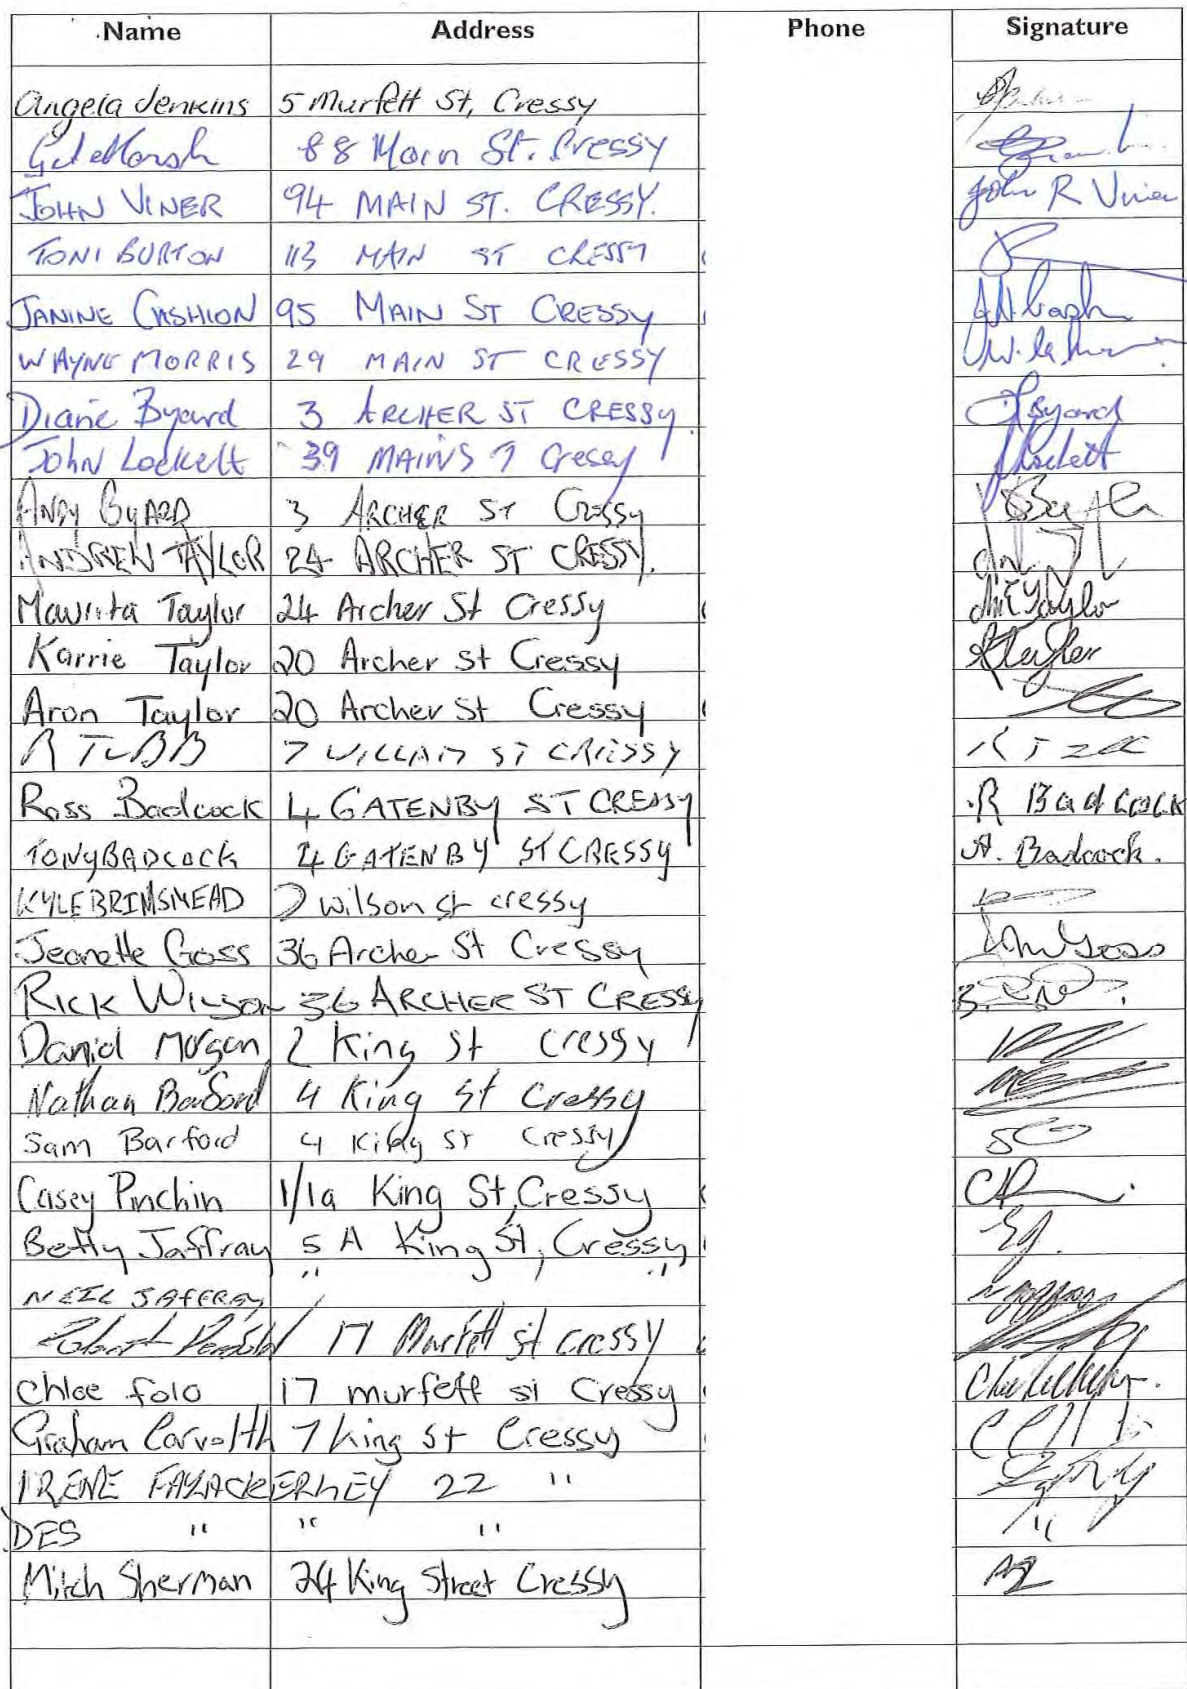 Name Address Phone Signature
Angela Jenkins 5 Murfett St, Cressy
88 Main St. Cressy
JOHN VINER 94 MAIN ST. CRESSY. John R Viner
TONI BURTON 113 MAIN ST CRESSY
JANINE CASHION 95 MAIN ST CRESSY
WAYNE MORRIS 29 MAIN ST CRESSY
Diane Byard 3 ARCHER ST CRESSY. Byard
John Lockett 39 MAINS T Cressy Lockett
ANDY BYARD 3 ARCHER ST Cressy
ANDREW TAYLOR 24 ARCHER ST CRESSY.
Maurita Taylor 24 Archer St Cressy Taylor
Karrie Taylor 20 Archer St Cressy
Aron Taylor 20 Archer St Cressy
R TUBB 7 ST CRESSY
Ross Badcock 4 GATENBY ST CRESSY R Badcock
TONY BADCOCK 4 GATENBY ST CRESSY A. Badcock.
KYLE BRIMSMEAD 7 wilson st cressy
Jeanette Goss 36 Archer St Cressy Goss
RICK WILSON 36 ARCHER ST CRESSY
Daniel Morgan 2 King St Cressy
Nathan 4 King St Cressy
Sam Barford 4 King St Cressy
Casey Pinchin 1/1a King St, Cressy
Betty Jaffray 5 A King St, Cressy
NEIL JAFFRAY " "
Robert 17 Murfett st cressy
Chloe folo 17 murfett st Cressy
Graham Carvolth 7 King St Cressy
IRENE FAZACKERLEY 22 "
DES " " " "
Mitch Sherman 24 King Street Cressy